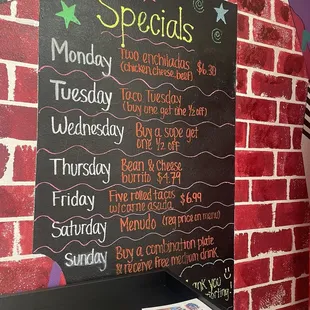 Specials
Monday Two enchiladas
(chicken, cheese, beef) $6.30
Tuesday Taco Tuesday
(buy one get one ½ off)
Wednesday Buy a sope get
one ½ off
Thursday Bean & Cheese
burrito $4.79
Friday Five rolled tacos $6.99
w/carne asada
Saturday Menudo (reg price on menu)
Sunday Buy a combination plate
& receive free medium drink